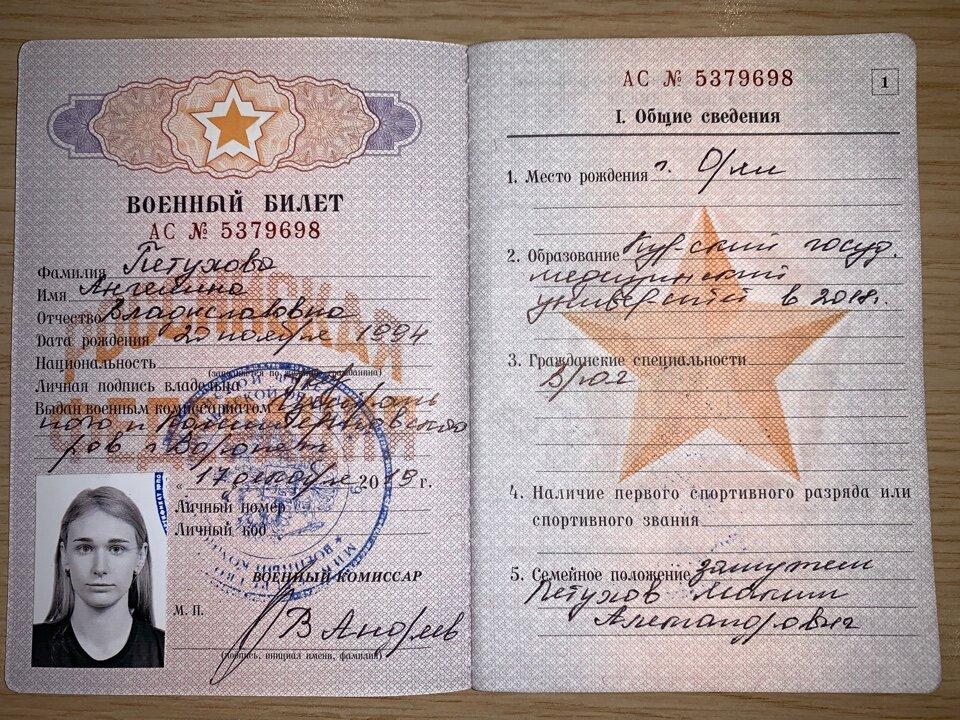 ВОЕННЫЙ БИЛЕТ
АС № 5379698
Фамилия Петухова
Имя Ангелина
Отчество Владиславовна
Дата рождения 20 ноября 1994
Национальность
Личная подпись владельца
Выдан военным комиссариатом
ного и Коминтерновского
р-ов г. Воронеж
"17" октября 2019 г.
Личный номер
Личный код
ВОЕННЫЙ КОМИССАР
М. П.
В Андреев
(подпись, инициал имени, фамилия)
АС № 5379698
1
I. Общие сведения
1. Место рождения г.
2. Образование Курский госуд.
медицинский
университет в 2018г.
3. Гражданские специальности
Врач
4. Наличие первого спортивного разряда или
спортивного звания
5. Семейное положение замужем
Петухов Максим
Александрович